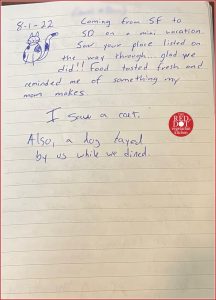 8-1-22
Coming from SF to
SD on a mini vacation.
Saw your place listed on
the way through... glad we
did!! Food tasted fresh and
reminded me of something my
mom makes.
I saw a cat.
Also, a dog layed
by us while we dined.
RED
DOT